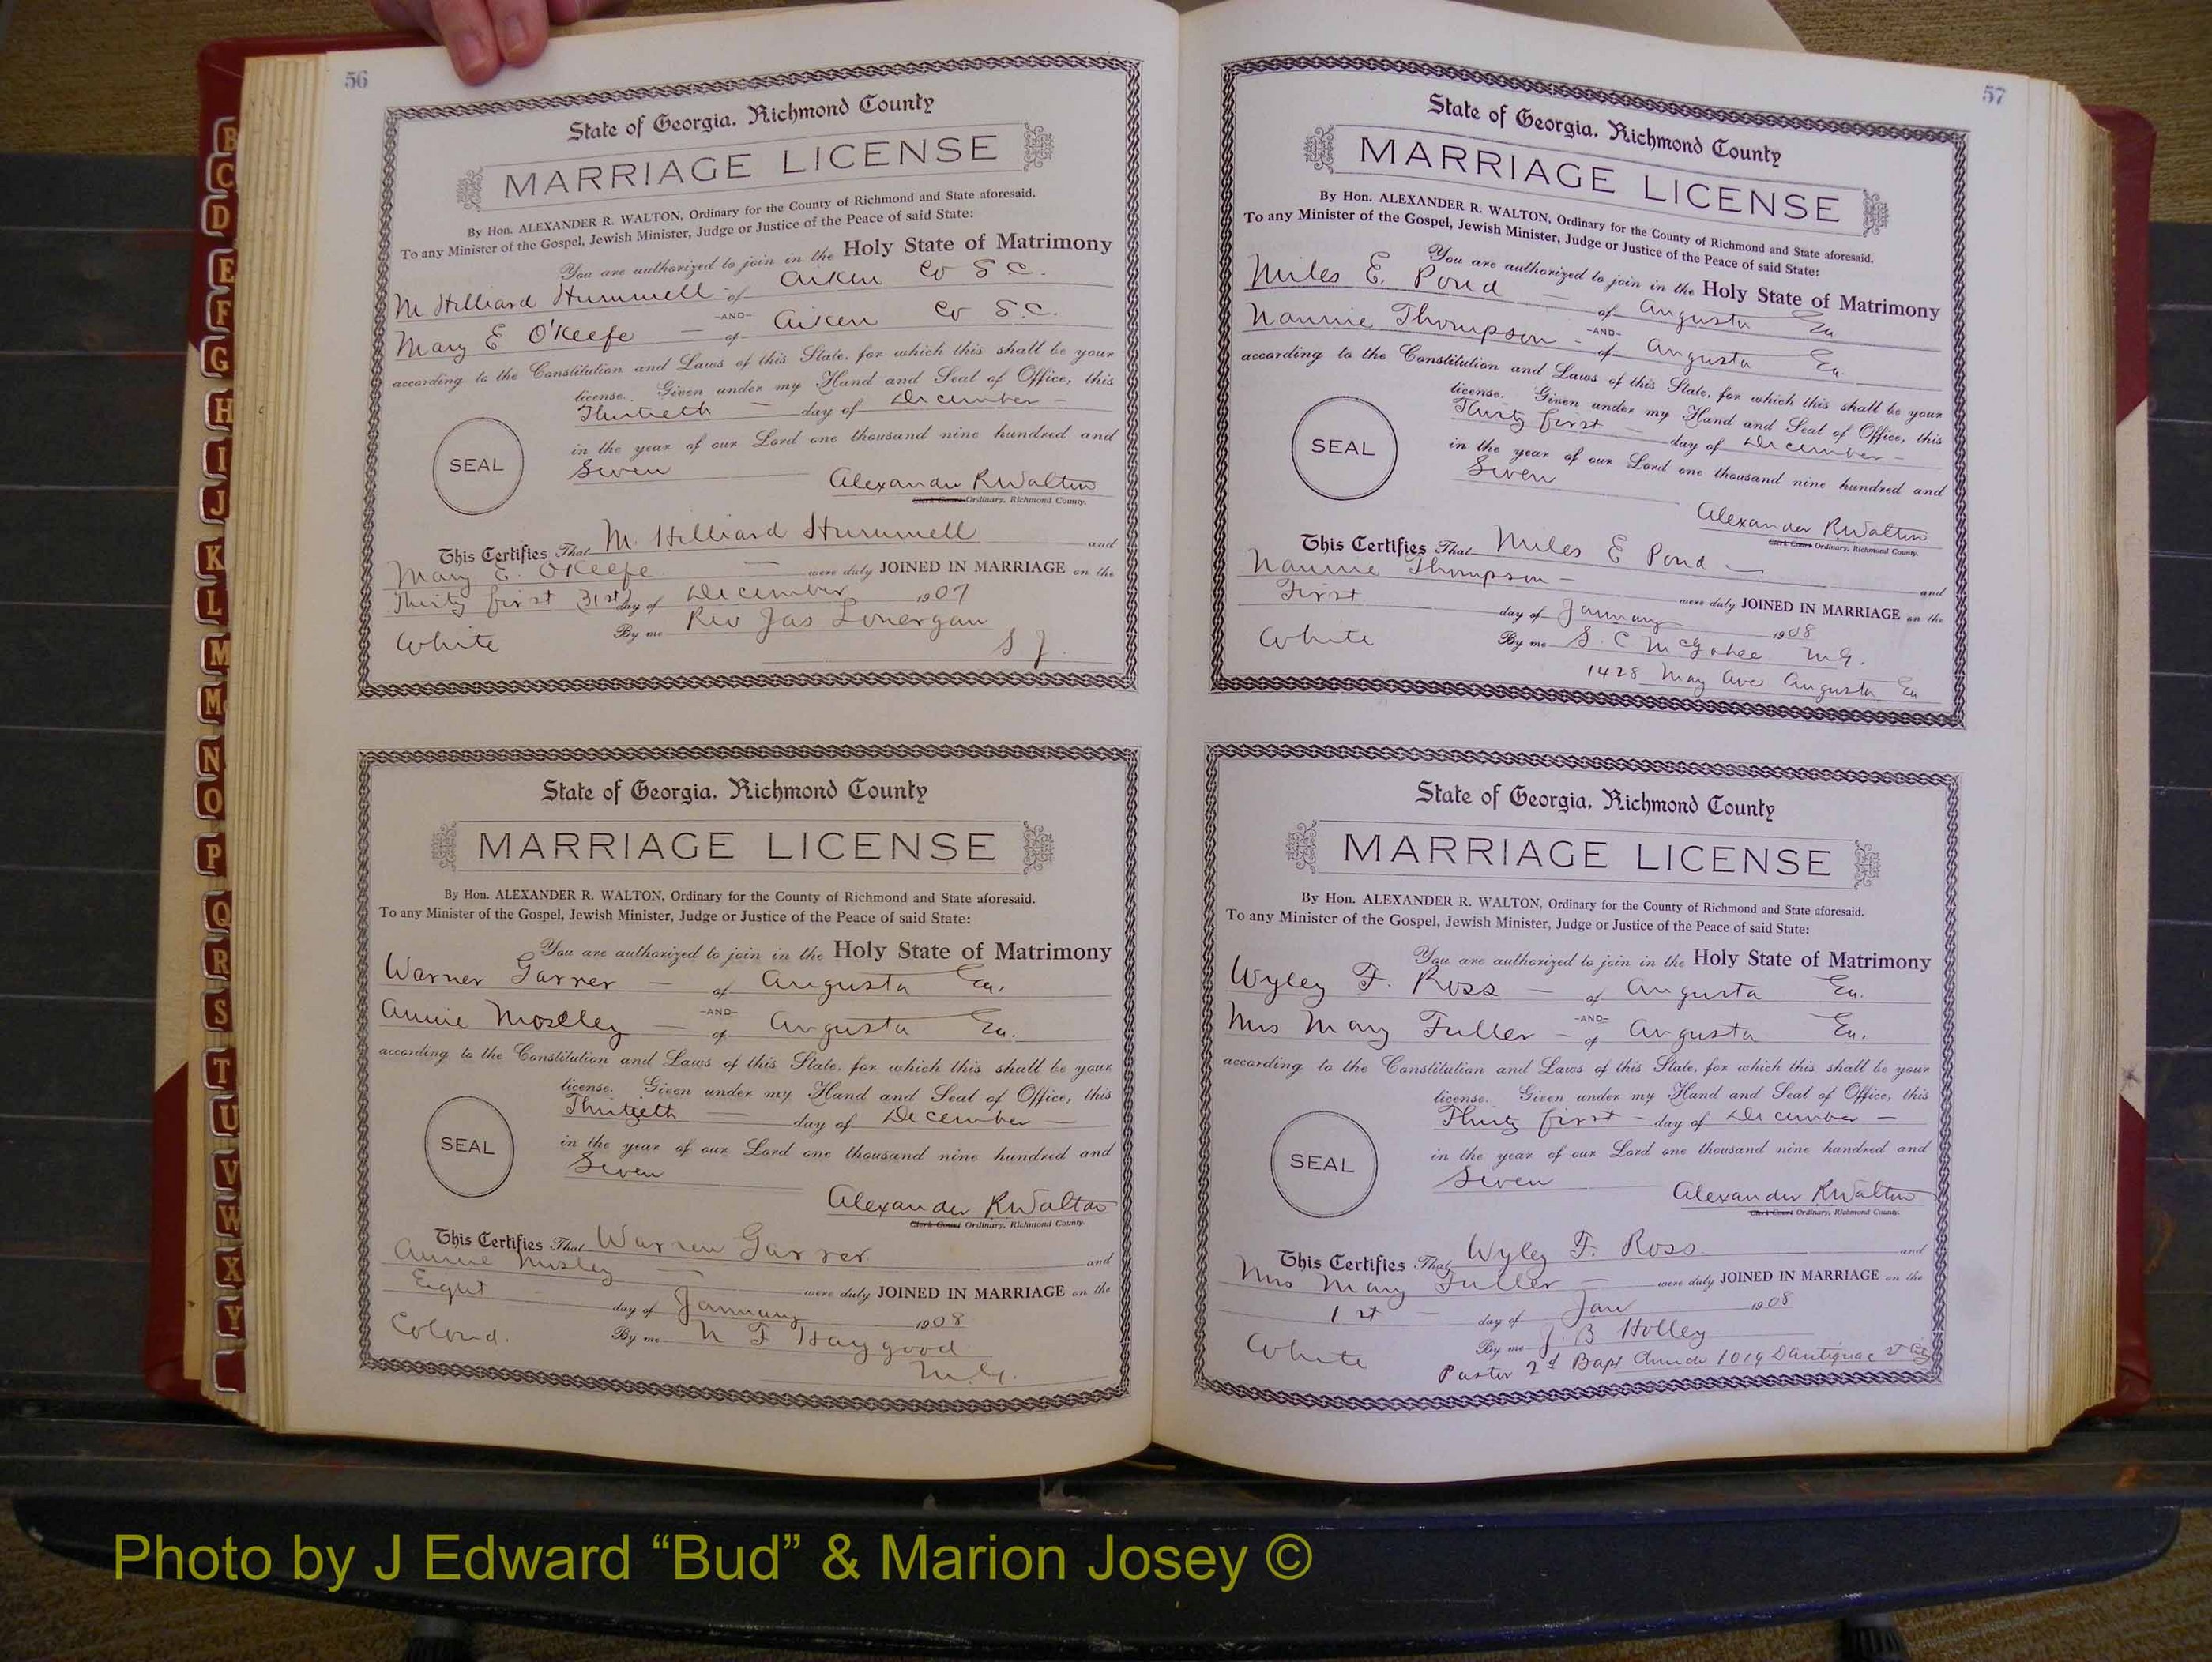 56
State of Georgia, Richmond County
MARRIAGE LICENSE
By Hon. ALEXANDER R. WALTON, Ordinary for the County of Richmond and State aforesaid.
To any Minister of the Gospel, Jewish Minister, Judge or Justice of the Peace of said State:
You are authorized to join in the Holy State of Matrimony
M Hilliard Hummell - of Aiken Co S C.
-AND-
Mary E O'Keefe — of Aiken Co S.C.
according to the Constitution and Laws of this State, for which this shall be your
license. Given under my Hand and Seal of Office, this
Thirtieth — day of December —
in the year of our Lord one thousand nine hundred and
Seven
SEAL
Alexander R Walton
Clerk Court Ordinary, Richmond County.
This Certifies That M. Hilliard Hummell and
Mary E. O'Keefe — were duly JOINED IN MARRIAGE on the
Thirty first 31st day of December 1907
White By me Rev Jas Lonergan
S J.
State of Georgia, Richmond County
MARRIAGE LICENSE
By Hon. ALEXANDER R. WALTON, Ordinary for the County of Richmond and State aforesaid.
To any Minister of the Gospel, Jewish Minister, Judge or Justice of the Peace of said State:
You are authorized to join in the Holy State of Matrimony
Warner Garner — of Augusta Ga.
-AND-
Annie Moseley — of Augusta Ga.
according to the Constitution and Laws of this State, for which this shall be your
license. Given under my Hand and Seal of Office, this
Thirtieth — day of December —
in the year of our Lord one thousand nine hundred and
Seven
SEAL
Alexander R Walton
Clerk Court Ordinary, Richmond County.
This Certifies That Warren Garner and
Annie Mosley — were duly JOINED IN MARRIAGE on the
Eight day of January 1908
Colored. By me N F Haygood
M.G.
57
State of Georgia, Richmond County
MARRIAGE LICENSE
By Hon. ALEXANDER R. WALTON, Ordinary for the County of Richmond and State aforesaid.
To any Minister of the Gospel, Jewish Minister, Judge or Justice of the Peace of said State:
You are authorized to join in the Holy State of Matrimony
Miles E. Pond — of Augusta Ga
-AND-
Nannie Thompson - of Augusta Ga.
according to the Constitution and Laws of this State, for which this shall be your
license. Given under my Hand and Seal of Office, this
Thirty first — day of December —
in the year of our Lord one thousand nine hundred and
Seven
SEAL
Alexander R Walton
Clerk Court Ordinary, Richmond County.
This Certifies That Miles E Pond — and
Nannie Thompson — were duly JOINED IN MARRIAGE on the
First day of January 1908
White By me S. C McGahee M.G.
1428 May Ave Augusta Ga
State of Georgia, Richmond County
MARRIAGE LICENSE
By Hon. ALEXANDER R. WALTON, Ordinary for the County of Richmond and State aforesaid.
To any Minister of the Gospel, Jewish Minister, Judge or Justice of the Peace of said State:
You are authorized to join in the Holy State of Matrimony
Wyley F. Ross — of Augusta Ga.
-AND-
Mrs Mary Fuller - of Augusta Ga.
according to the Constitution and Laws of this State, for which this shall be your
license. Given under my Hand and Seal of Office, this
Thirty first — day of December —
in the year of our Lord one thousand nine hundred and
Seven
SEAL
Alexander R Walton
Clerk Court Ordinary, Richmond County.
This Certifies That Wyley F. Ross and
Mrs Mary Fuller — were duly JOINED IN MARRIAGE on the
1st — day of Jan 1908
White By me J. B Holley
Pastor 2d Bapt Church 1019 D'Antignac st
B
C
D
E
F
G
H
I
J
K
L
M
Mc
N
O
P
Q
R
S
T
U
V
W
X
Y
Photo by J Edward “Bud” & Marion Josey ©